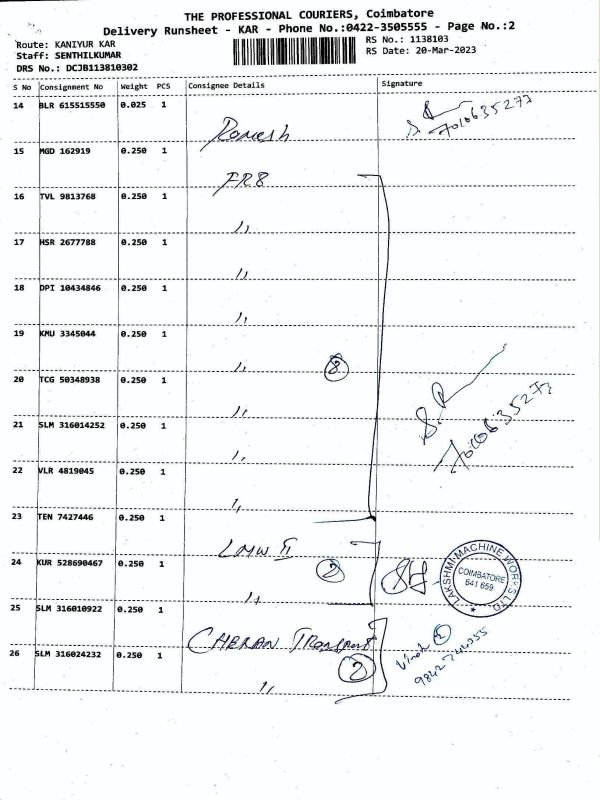 THE PROFESSIONAL COURIERS, Coimbatore
Delivery Runsheet - KAR - Phone No.:0422-3505555 - Page No.:2
Route: KANIYUR KAR
RS No.: 1138103
Staff: SENTHILKUMAR
RS Date: 20-Mar-2023
DRS No.: DCJB113810302
S No Consignment No Weight PCS Consignee Details Signature
14 BLR 615515550 0.025 1
Ramesh
15 MGD 162919 0.250 1
FRB
16 TVL 9813768 0.250 1
",
17 HSR 2677788 0.250 1
",
18 DPI 10434846 0.250 1
",
19 KMU 3345044 0.250 1
", 8
20 TCG 50348938 0.250 1
",
21 SLM 316014252 0.250 1
",
22 VLR 4819045 0.250 1
",
23 TEN 7427446 0.250 1
LMW II
24 KUR 528690467 0.250 1
", 2
LAKSHMI MACHINE WORKS LTD.
COIMBATORE
641 659
25 SLM 316010922 0.250 1
CHERAN Transport
26 SLM 316024232 0.250 1
", 2